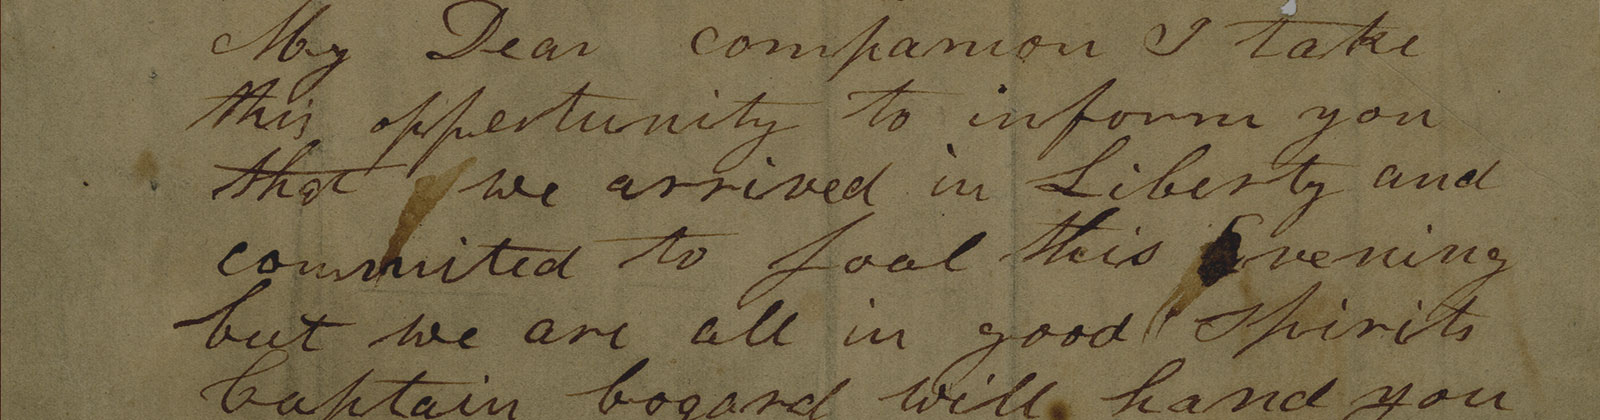 My Dear companion I take
this oppertunity to inform you
that we arrived in Liberty and
committed to Joal this Evening
but we are all in good spirits
Captain bogard will hand you